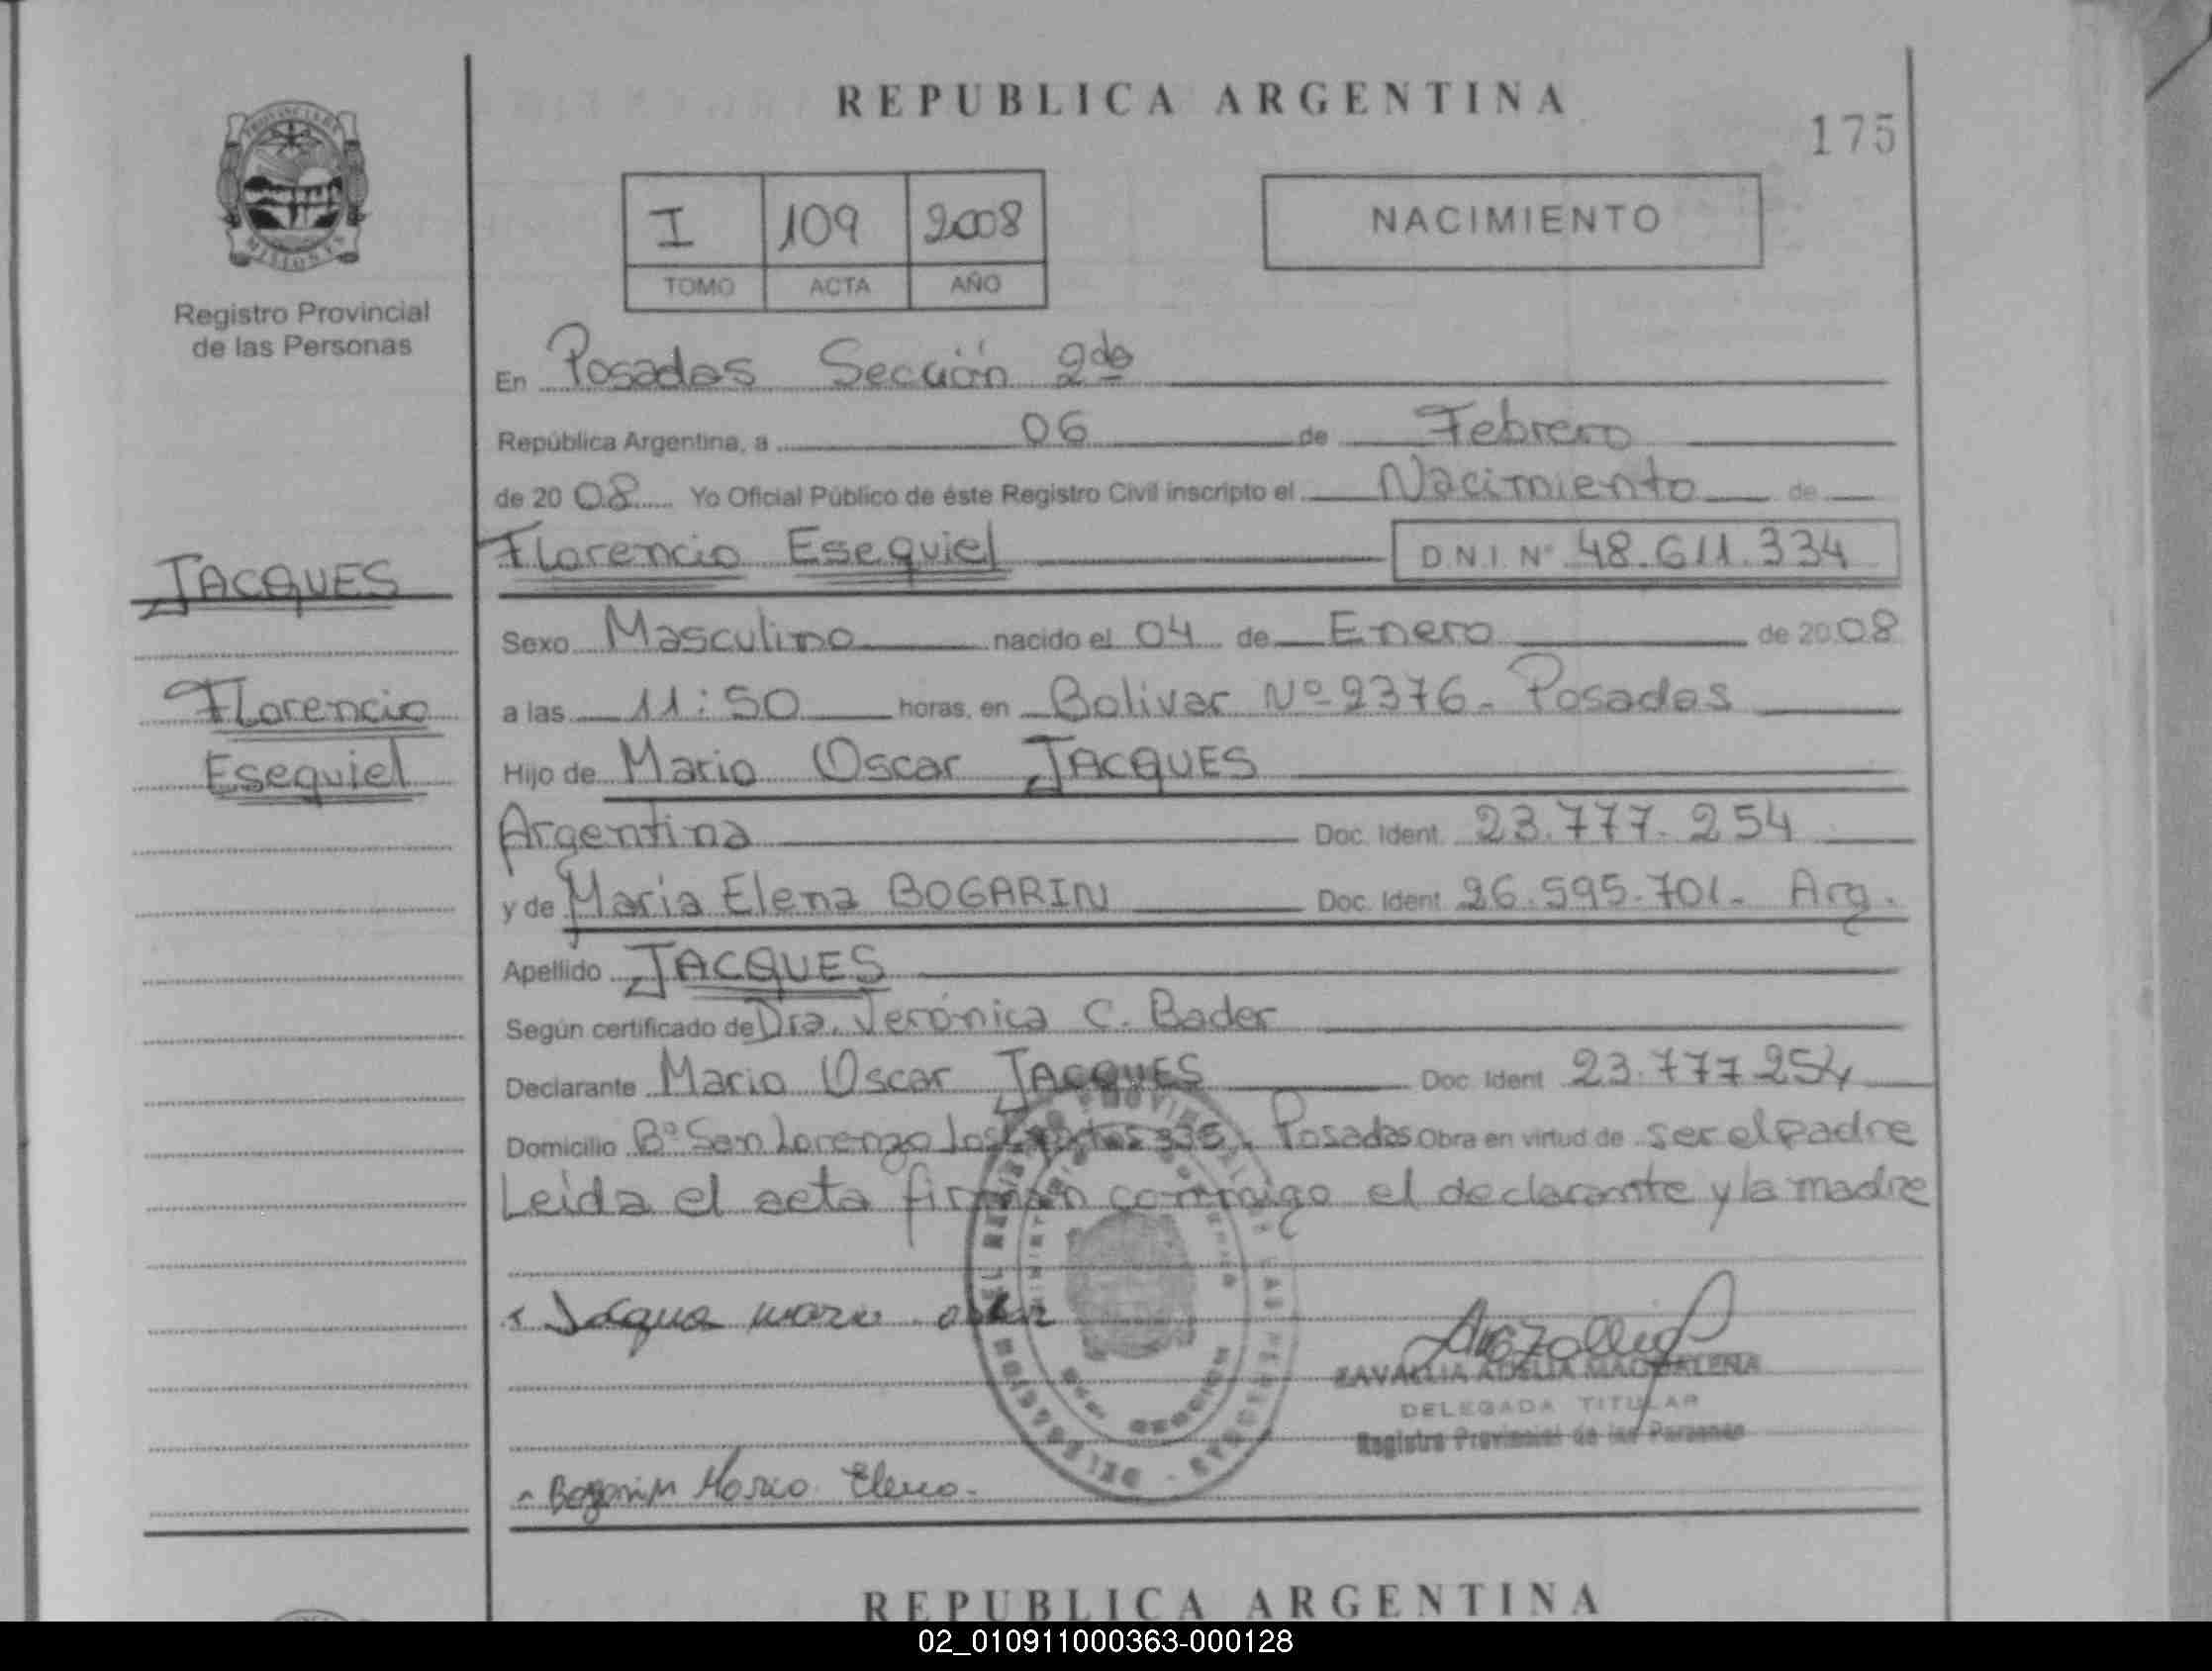 REPUBLICA ARGENTINA
175
PROVINCIA DE
MISIONES
Registro Provincial
de las Personas
I 109 2008
TOMO ACTA AÑO
NACIMIENTO
En Posadas Sección 2da
República Argentina, a 06 de Febrero
de 2008 Yo Oficial Público de éste Registro Civil inscripto el Nacimiento de
Florencio Esequiel D.N.I. Nº 48.611.334
JACQUES
Florencio
Esequiel
Sexo Masculino nacido el 04 de Enero de 2008
a las 11:50 horas, en Bolivar Nº 2376- Posadas
Hijo de Mario Oscar JACQUES
Argentina Doc. Ident. 23.777.254
y de Maria Elena BOGARIN Doc. Ident. 26.595.701- Arg.
Apellido JACQUES
Según certificado de Dra. Verónica C. Bader
Declarante Mario Oscar JACQUES Doc. Ident. 23.777.254
Domicilio Bº San Lorenzo Posadas Obra en virtud de ser el padre
Leida el acta firman conmigo el declarante y la madre
Bogarin Maria Elena.
ZAVALLIA ADELIA MAGDALENA
DELEGADA TITULAR
Registro Provincial de las Personas
REPUBLICA ARGENTINA
02_010911000363-000128